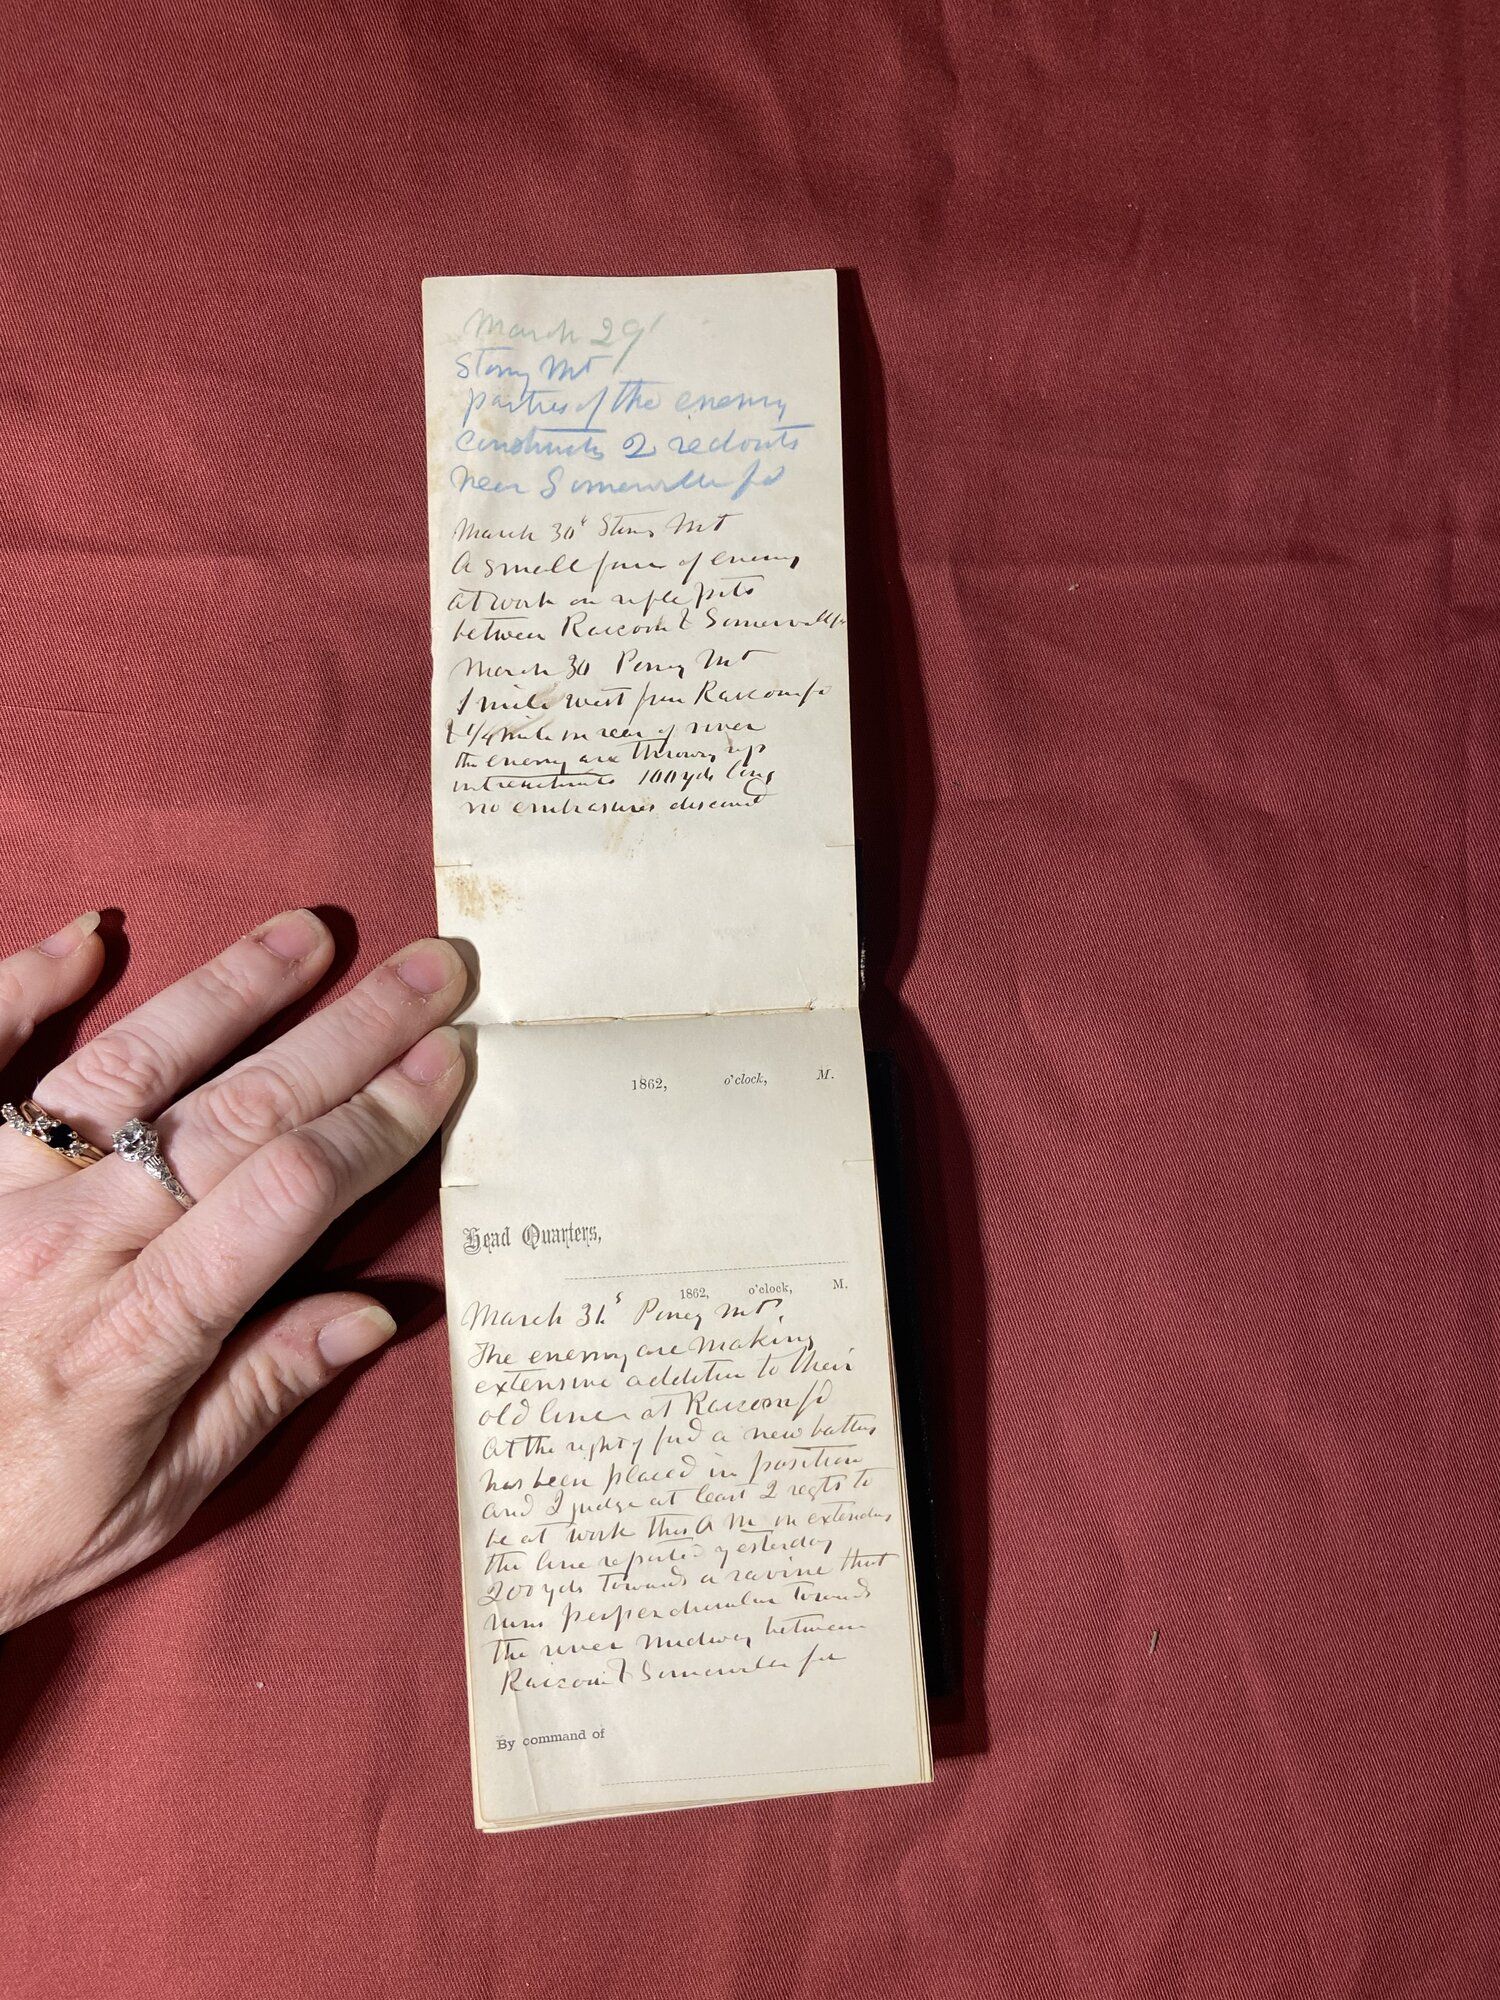 March 29'
Stony Mt
parties of the enemy
constructs 2 redouts
near Somerville fd
March 30" Stony Mt
A small force of enemy
at work on rifle pits
between Raccoon & Somerville fd
March 30 Poney Mt
1 mile west from Raccoon fd
& 1/4 mile in rear of river
the enemy are throwing up
intrenchmts 100 yds long
no embrasures discovd
1862, o'clock, M.
Head Quarters,
1862, o'clock, M.
March 31s Poney Mt.
The enemy are making
extensive addition to their
old lines at Raccoon fd
At the right of ford a new battery
has been placed in position
and I judge at least 2 regts to
be at work this A M in extending
the line reported yesterday
200 yds towards a ravine that
runs perpendicular towards
the river midway between
Raccoon & Somerville fd
By command of